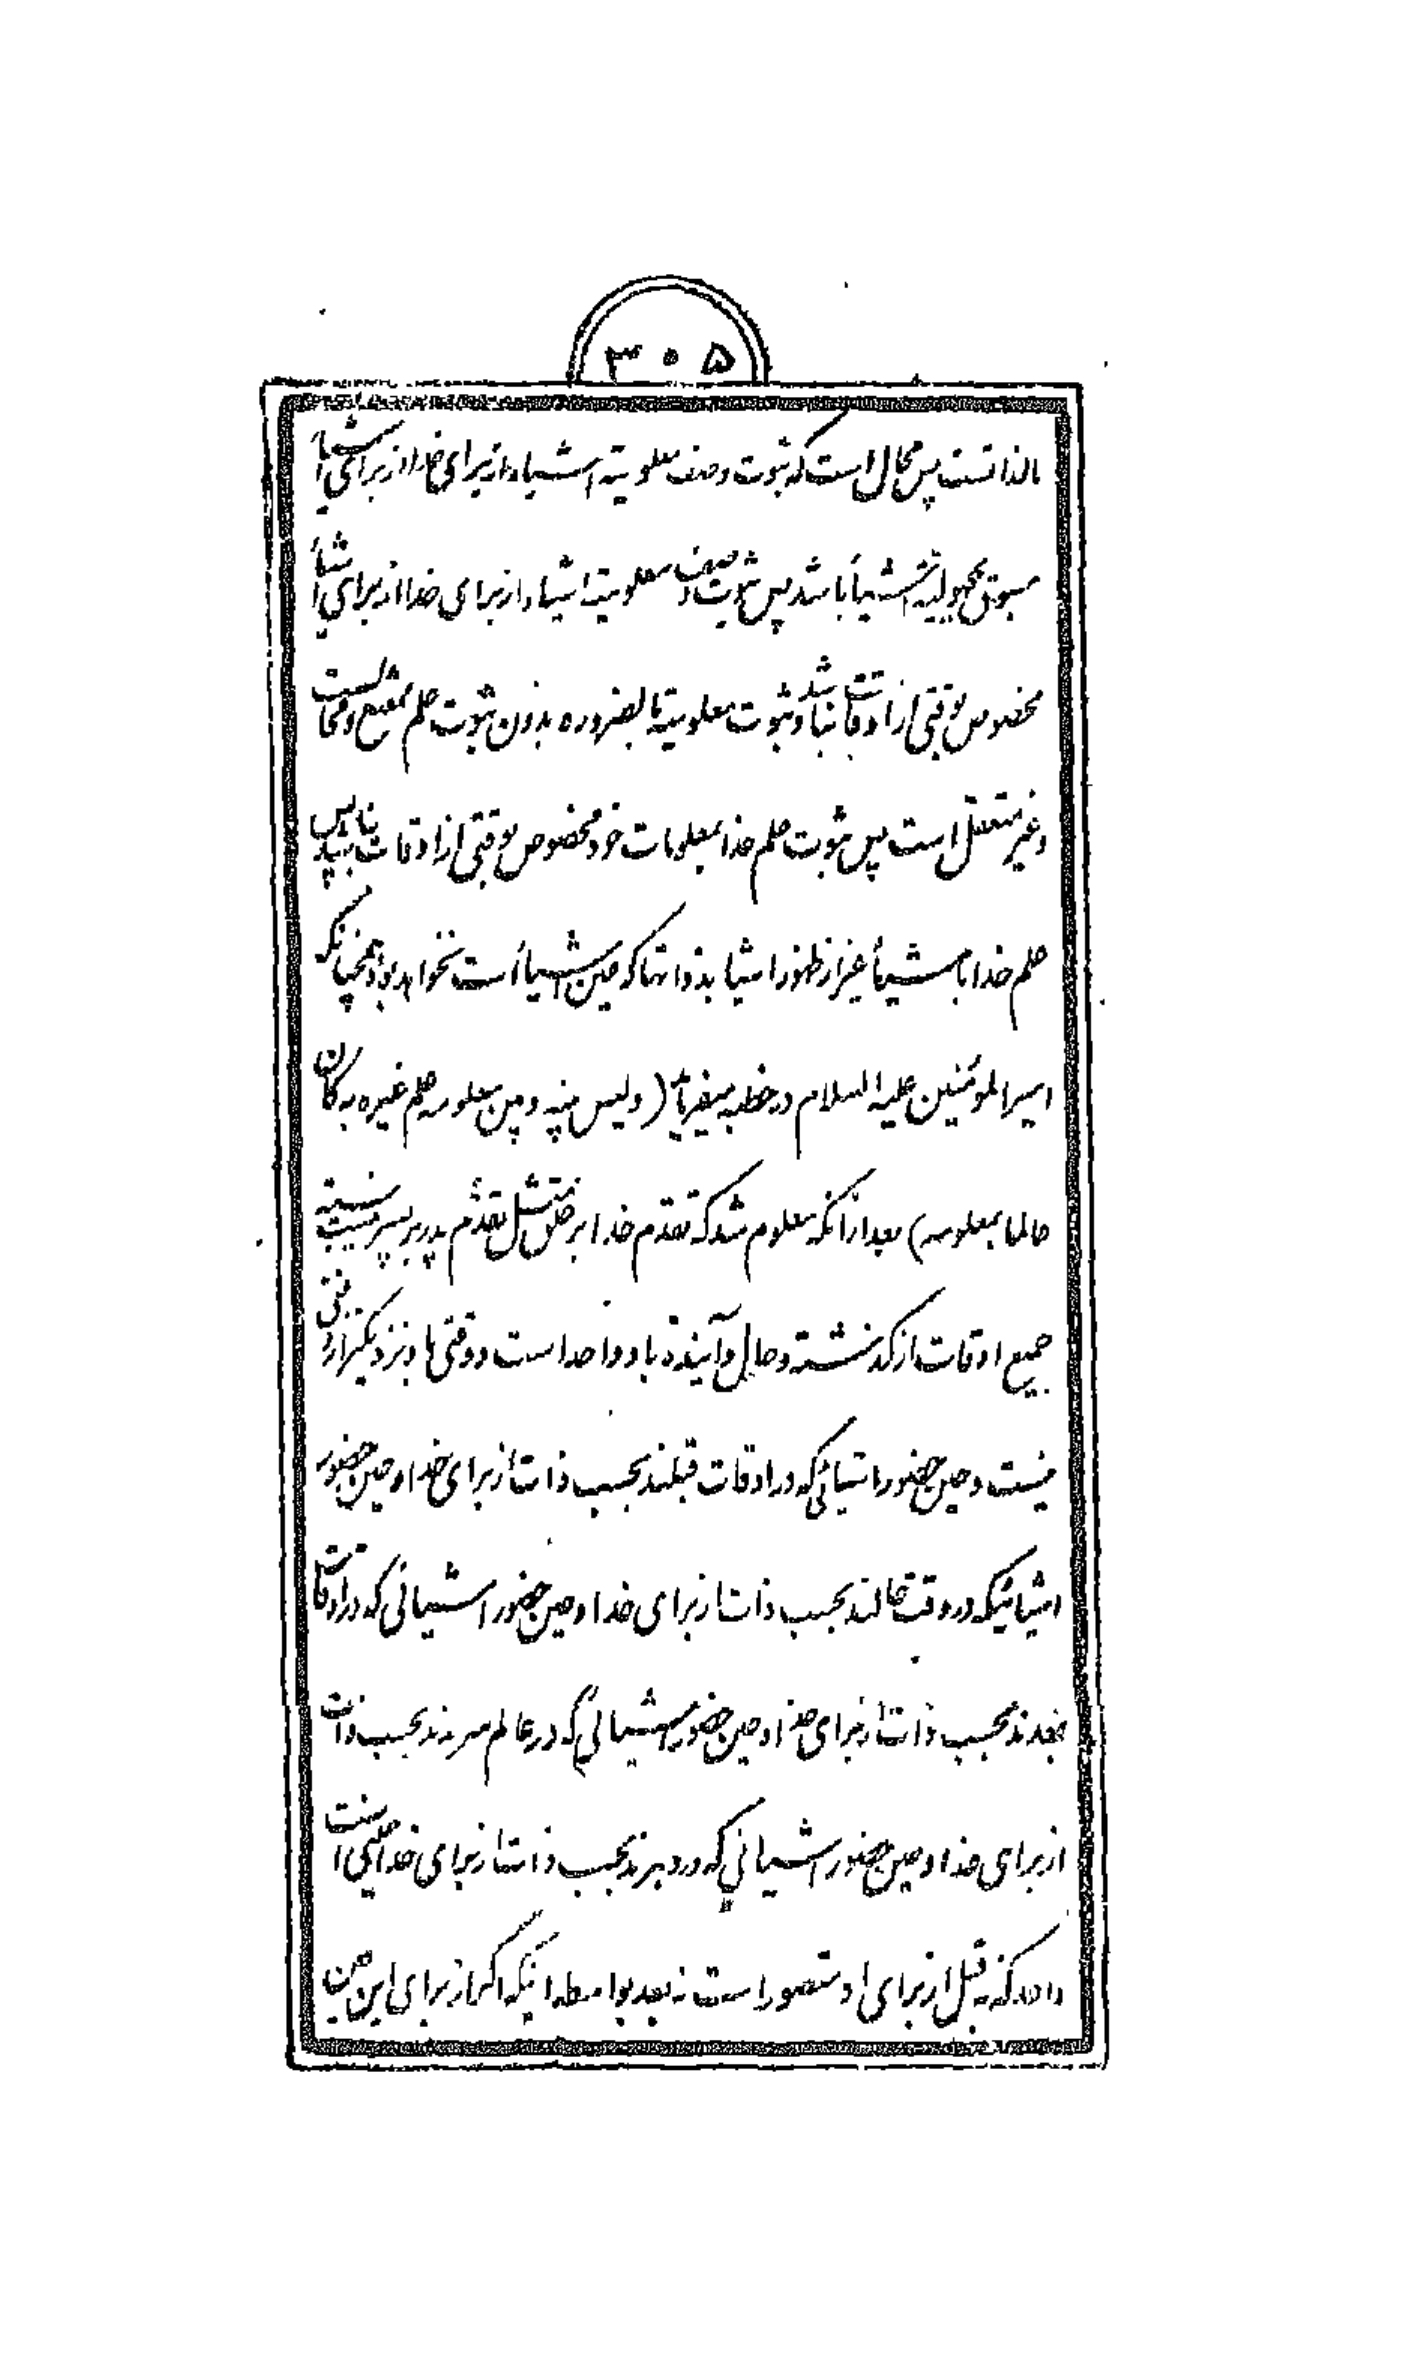 ۳۰۵
بالذاتست پس محال است که ثبوت وصف معلومیته اشیاء از برای خدا از برای اشیأ
مسبوق بمجهولیته اشیأ باشد پس ثبوت وصف معلومیته اشیاء از برای خدا از برای اشیأ
مخصوص بوقتی از اوقات نباشد و ثبوت معلومیته بالضروره بدون ثبوت علم ممتنع و محالست
و غیر متعقل است پس ثبوت علم خدا بمعلومات خود مخصوص بوقتی از اوقات نباید پس
علم خدا باشیأ غیر از ظهور اشیا بذواتها که عین اشیأ است نخواهد بود همچنانکه
امیر المومنین علیه السلام در خطبه میفرماید (ولیس بینه وبین معلومه علم غیره به کان
عالما بمعلومه) بعد از آنکه معلوم شد که تقدم خدا بر خلق مثل تقدم پدر بر پسر نیست نسبته
جمیع اوقات از گذشته و حال و آینده باو واحد است و وقتی باو نزدیکتر از وقتی
نیست و حین حضور اشیائی که در اوقات قبلند بحسب ذات از برای خدا و حین حضور
اشیائیکه در وقت حالند بحسب ذات از برای خدا و حین حضور اشیائی که در اوقات
بعدند بحسب ذات از برای خدا و حین حضور اشیائی که در عالم سرمدند بحسب ذات
از برای خدا و حین حضور اشیائی که در دهرند بحسب ذات از برای خدا حینی است
واحد که نه قبل از برای او متصور است نه بعد بواسطه اینکه اگر از برای این حین